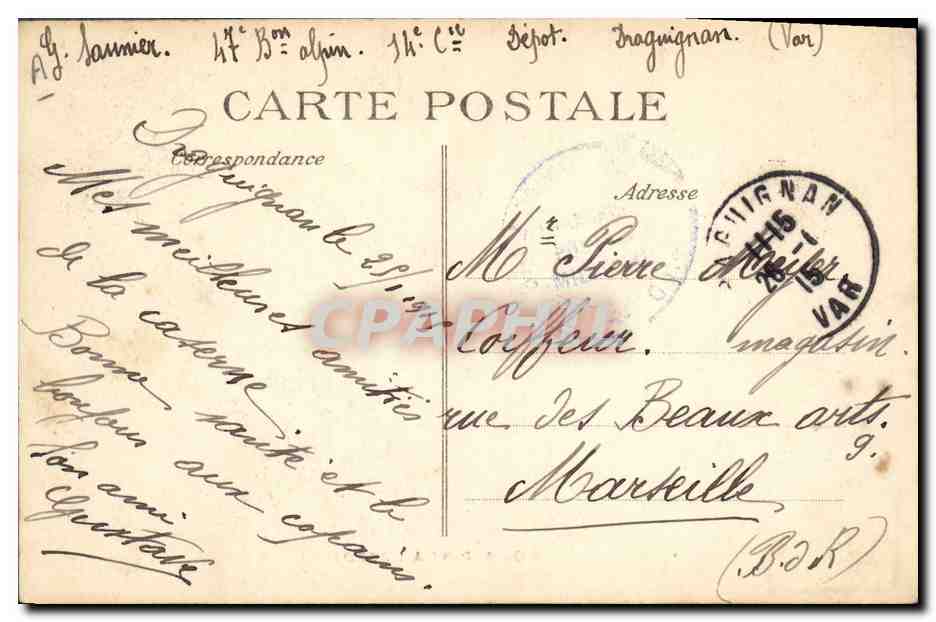 G. Saunier. 47e Bon alpin. 14e Cie Dépôt. Draguignan. (Var)
CARTE POSTALE
Correspondance
Adresse
Draguignan le 25/1.
Mes meilleures amitiés
de la caserne
Bonne santé et le
bonjour aux copains.
Ton ami
Gustave
Mr Pierre Meyer
Coiffeur. magasin.
rue des Beaux arts.
9.
Marseille
(B.d R)
GUIGNAN
11 15
26 - 1
15
VAR
CPAPHIL